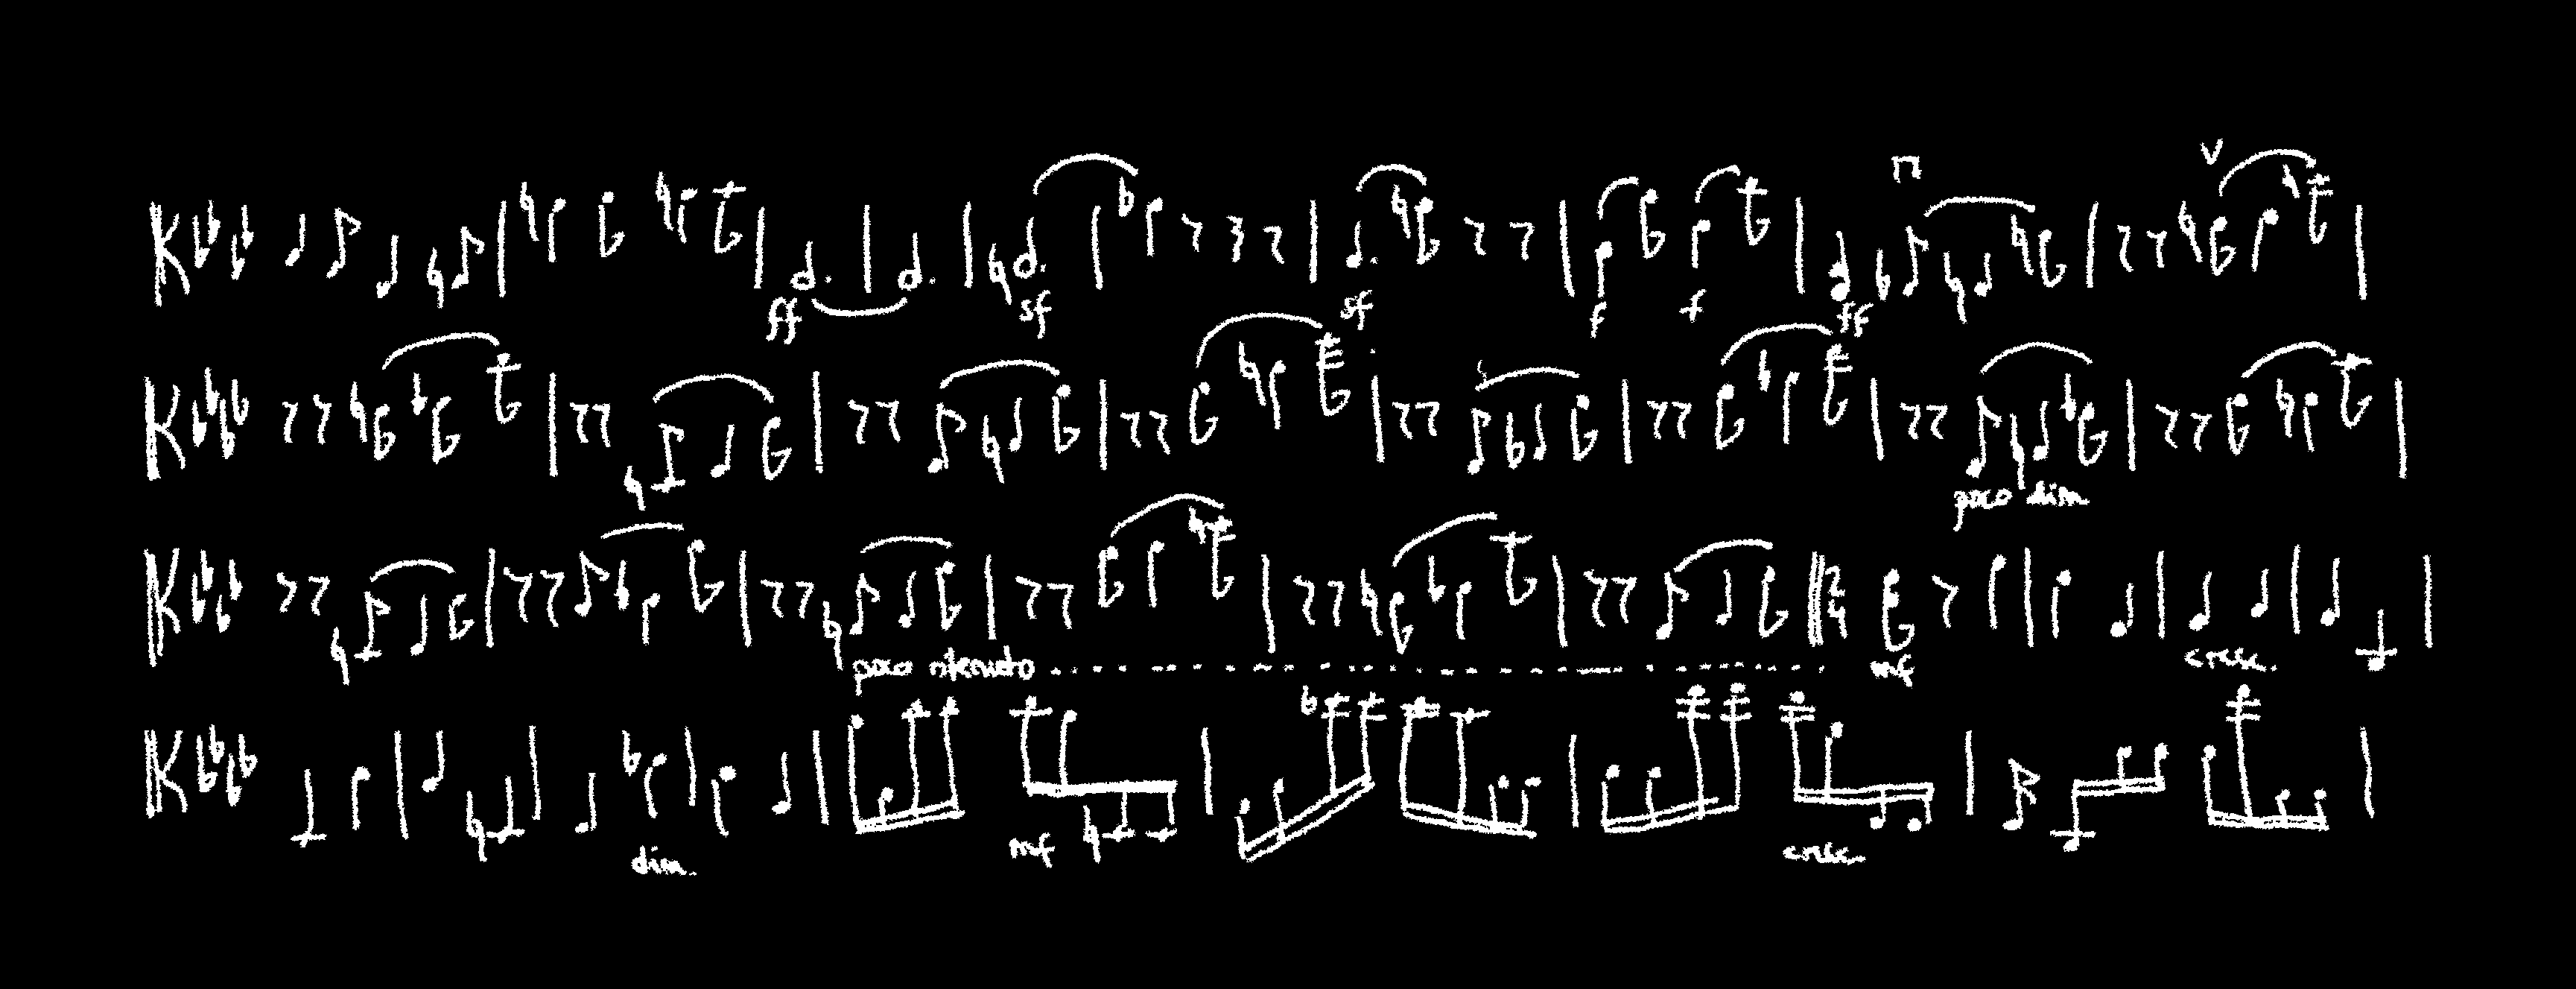 ff sf sf f f ff
poco dim
poco ritenuto mf cresc.
dim. mf cresc.